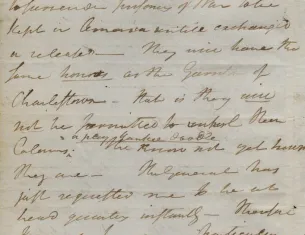 to surrender prisoners of War to be
kept in America untill exchanged
or released — They will have the
same honors as the Garrison of
Charlestown — that is they will
not be permitted to unfurl their
Colours, or play Yankee Doodle
We know not yet how
They are — The General has
just requested me to be at
head quarters instantly —